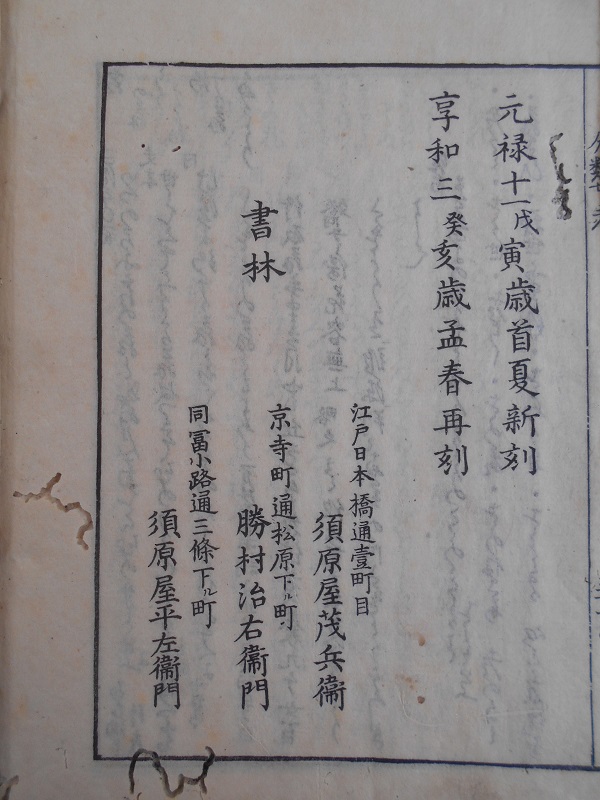 元禄十一戊寅歳首夏新刻
享和三癸亥歳孟春再刻
書林
江戸日本橋通壹町目
須原屋茂兵衞
京寺町通松原下ル町
勝村治右衞門
同冨小路通三條下ル町
須原屋平左衞門